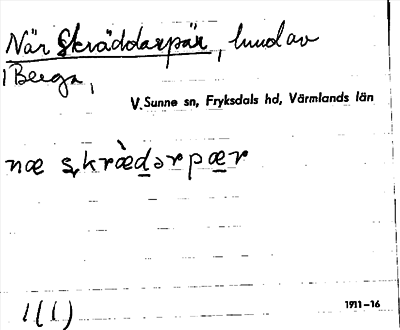 När Skräddarpär, lund av
Berga,
V. Sunne sn, Fryksdals hd, Värmlands län
næ skræ̀dərpær
1(1)
1911–16